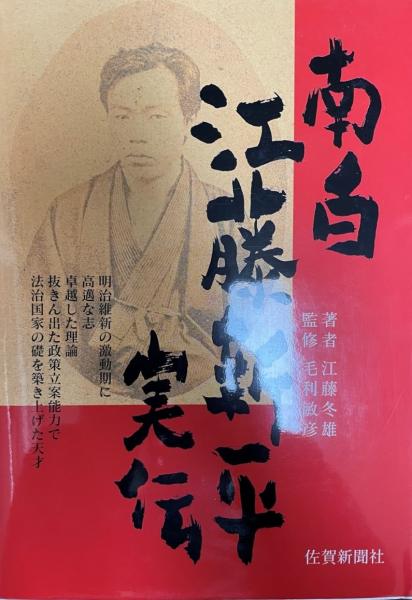 南白
江藤新平
実伝
著者 江藤冬雄
監修 毛利敏彦
明治維新の激動期に
高邁な志
卓越した理論
抜きん出た政策立案能力で
法治国家の礎を築き上げた天才
佐賀新聞社